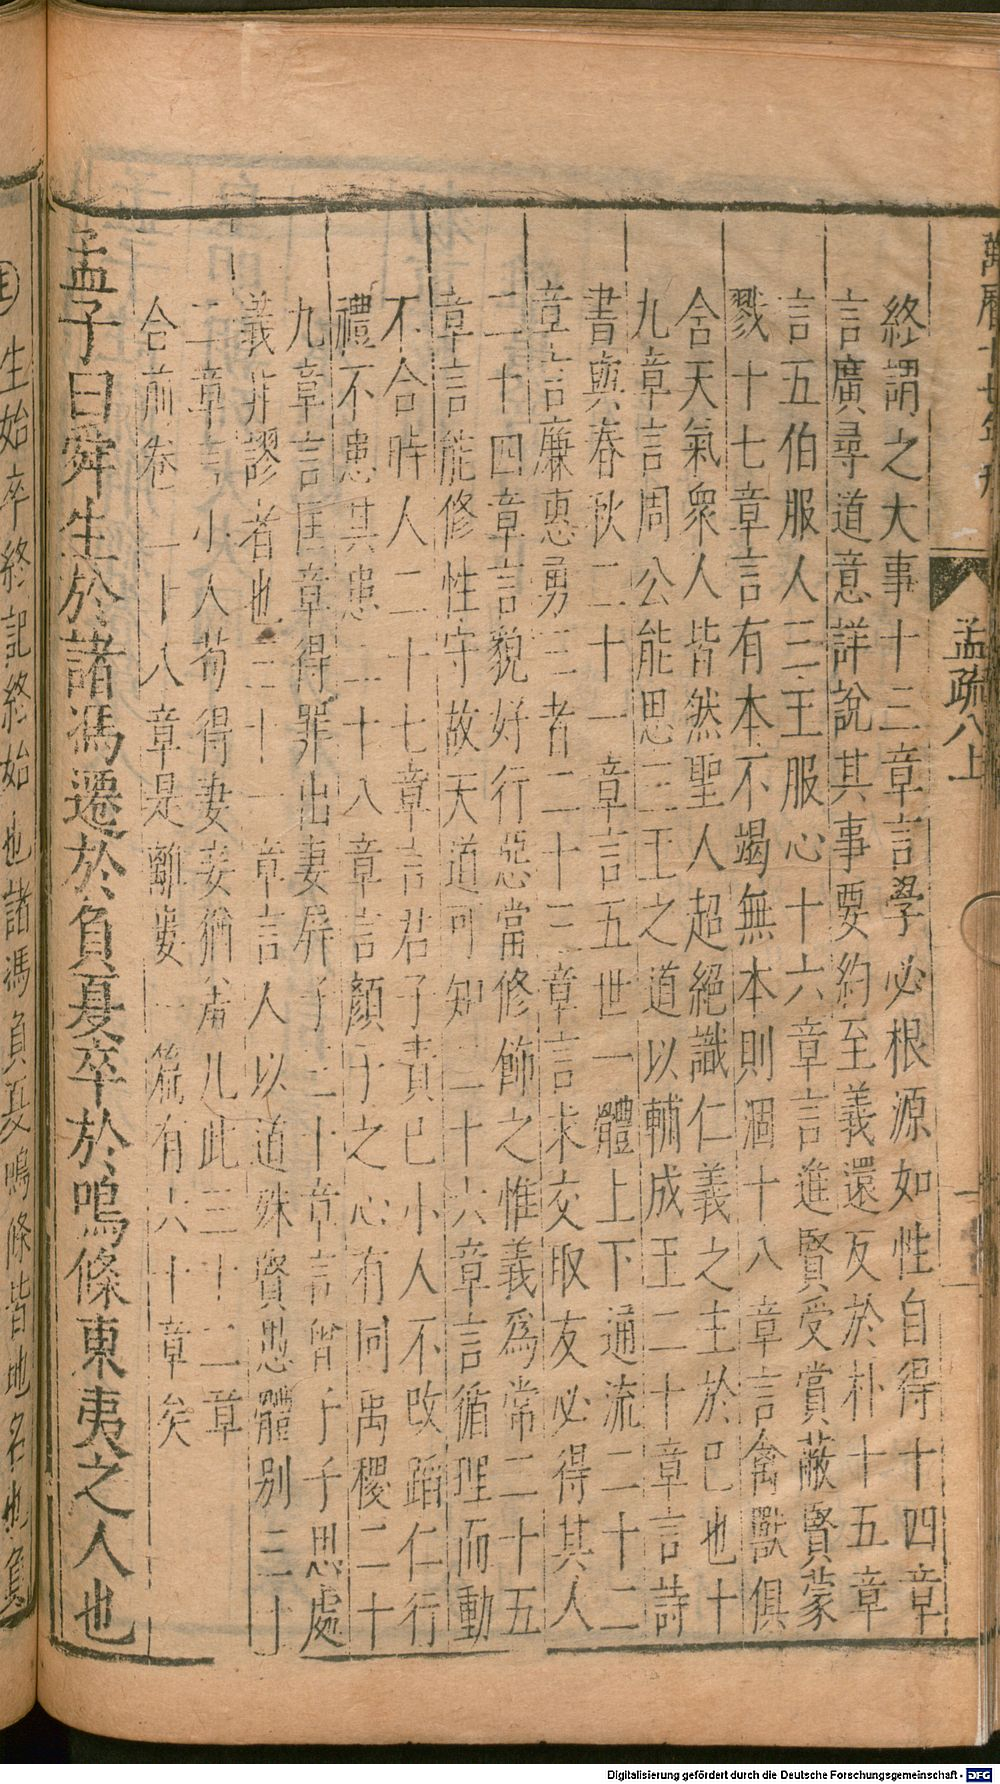 萬曆十七年刊
孟疏八上
終謂之大事十三章言學必根源如性自得十四章
言廣尋道意詳說其事要約至義還反於朴十五章
言五伯服人三王服心十六章言進賢受賞蔽賢蒙
戮十七章言有本不竭無本則涸十八章言禽獸俱
含天氣衆人皆然聖人超絕識仁義之主於己也十
九章言周公能思三王之道以輔成王二十章言詩
書與春秋二十一章言五世一體上下通流二十二
章言廉惠勇三者二十三章言求交取友必得其人
二十四章言貌好行惡當修飾之惟義爲常二十五
章言能修性守故天道可知二十六章言循理而動
不合時人二十七章言君子責己小人不改蹈仁行
禮不患其患二十八章言顏子之心有同禹稷二十
九章言匡章得罪出妻屏子三十章言曾子子思處
義非謬者也三十一章言人以道殊賢愚體別三十
二章言小人苟得妻妾猶羞凡此三十二章
合前卷二十八章是離婁一篇有六十章矣
孟子曰舜生於諸馮遷於負夏卒於鳴條東夷之人也
生始卒終記終始也諸馮負夏鳴條皆地名也負
Digitalisierung gefördert durch die Deutsche Forschungsgemeinschaft - DFG